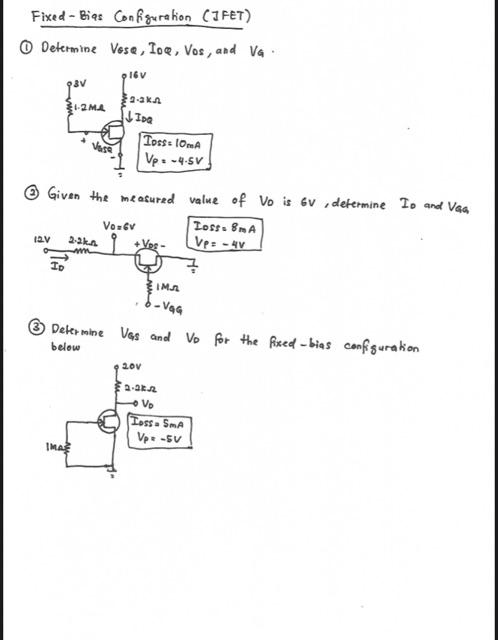 Fixed-Bias Configuration (JFET)
① Determine VGSQ, IDQ, VDS, and VG.
16V
3V
2.2kΩ
1.2MΩ
↓ IDQ
+
VGSQ
-
IDSS= 10mA
Vp = -4.5V
② Given the measured value of VD is 6V, determine ID and VGG
VD=6V
IDSS= 8mA
Vp= -4V
12V
2.2kΩ
+ VDS -
ID
1MΩ
-VGG
③ Determine VGS and VD for the fixed-bias configuration
below
20V
2.2kΩ
VD
IDSS= 5mA
Vp= -5V
1MΩ